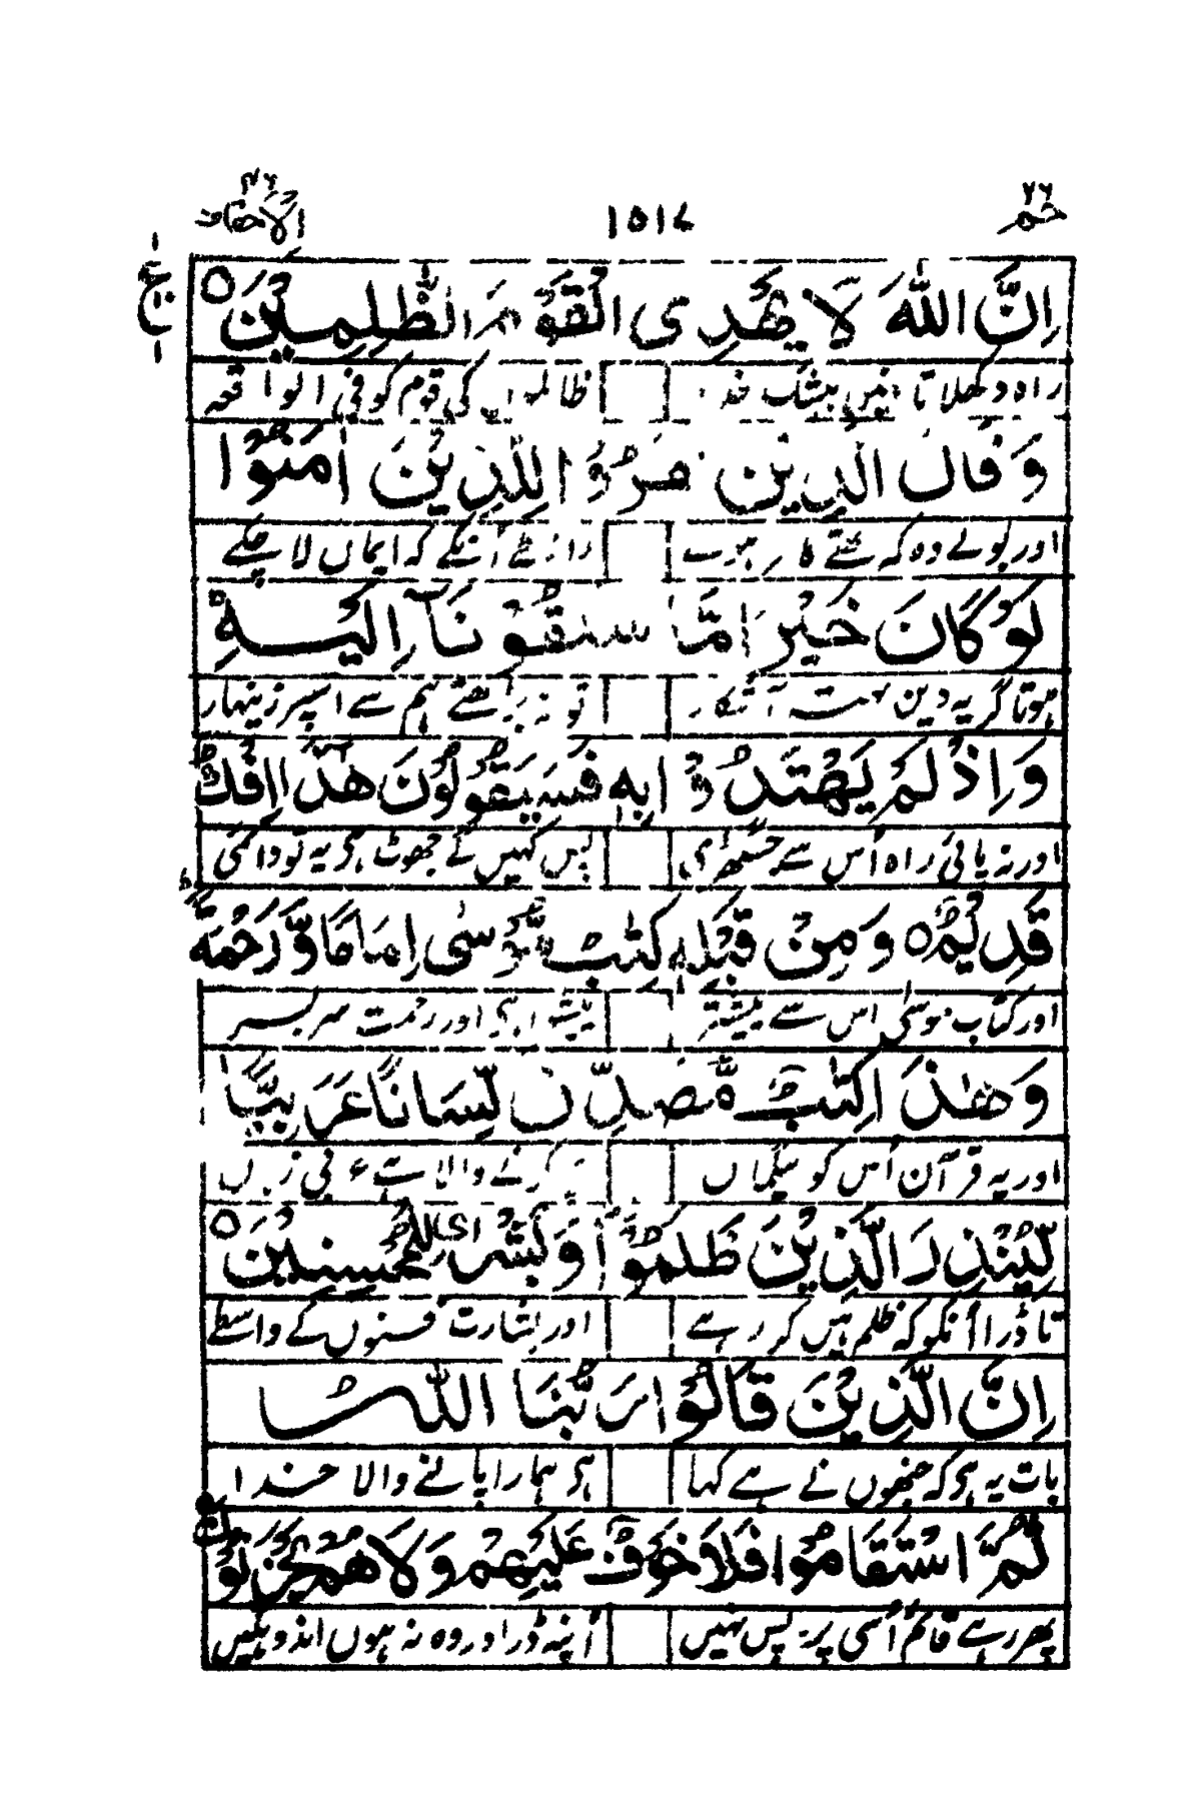 حٰمٓ ۲۶ ۱۵۱۷ الاحقاف ۴۶
اِنَّ اللّٰهَ لَا یَهْدِی الْقَوْمَ الظّٰلِمِیْنَ ○
راہ دکھلاتا نہیں بیشک خدا ظالموں کی قوم کو فی الواقعہ
وَقَالَ الَّذِیْنَ كَفَرُوْا لِلَّذِیْنَ اٰمَنُوْا
اور بولے وہ کہ تھے کافر انکے کہ ایماں لا چکے
لَوْ كَانَ خَیْرًا مَّا سَبَقُوْنَاۤ اِلَیْهِ
ہوتا گر یہ دین تو نہ بڑھتے ہم سے اسپر زینہار
وَاِذْ لَمْ یَهْتَدُوْا بِهٖ فَسَیَقُوْلُوْنَ هٰذَاۤ اِفْكٌ
اور نہ پائی راہ اُس سے پس کہیں گے جھوٹ ہی یہ تو
قَدِیْمٌ ○ وَمِنْ قَبْلِهٖ كِتٰبُ مُوْسٰۤی اِمَامًا وَّرَحْمَةً
اور کتاب موسٰی اس سے پیشتر پیشوا ہی اور رحمت سر بسر
وَهٰذَا كِتٰبٌ مُّصَدِّقٌ لِّسَانًا عَرَبِیًّا
اور یہ قرآن اُس کو کرنے والا ہے
لِّیُنْذِرَ الَّذِیْنَ ظَلَمُوْا وَبُشْرٰی لِلْمُحْسِنِیْنَ ○
تا ڈرا انکو کہ ظلم ہیں کر رہے اور بشارت محسنوں کے واسطے
اِنَّ الَّذِیْنَ قَالُوْا رَبُّنَا اللّٰهُ
بات یہ ہی کہ جنھوں نے ہے کہا ہی ہمارا پالنے والا خدا
ثُمَّ اسْتَقَامُوْا فَلَا خَوْفٌ عَلَیْهِمْ وَلَا هُمْ یَحْزَنُوْنَ
پھر رہے قائم اُسی پر پس نہیں اُنپہ ڈر اور وہ نہ ہوں اندوہگیں